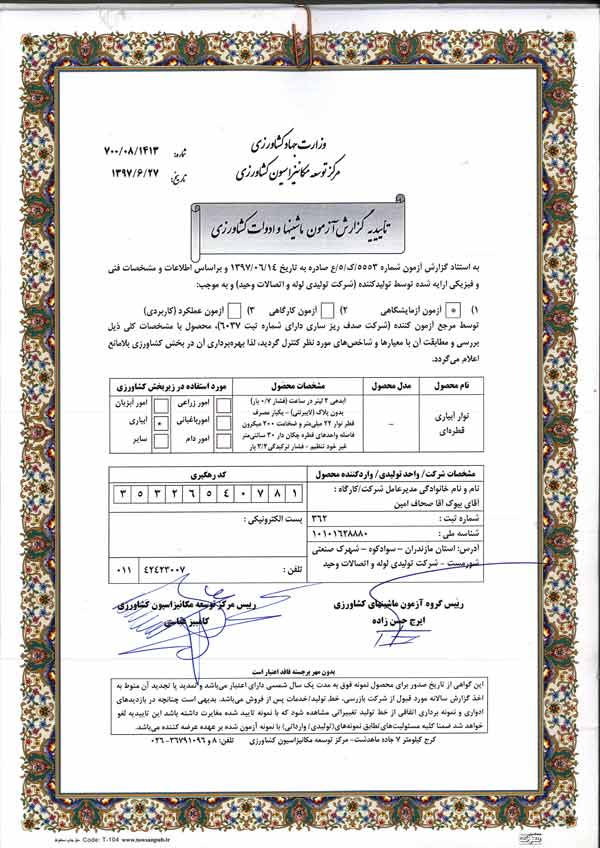 وزارت جهاد کشاورزی
مرکز توسعه مکانیزاسیون کشاورزی
شماره: ۷۰۰/۰۸/۱۴۱۳
تاریخ: ۱۳۹۷/۶/۲۷
تاییدیه گزارش آزمون ماشینها و ادوات کشاورزی
به استناد گزارش آزمون شماره ۵۵۵۳/ک/۵/ع صادره به تاریخ ۱۳۹۷/۰۶/۱۴ و براساس اطلاعات و مشخصات فنی
و فیزیکی ارایه شده توسط تولیدکننده (شرکت تولیدی لوله و اتصالات وحید) و به موجب:
۱) * آزمون آزمایشگاهی ۲) آزمون کارگاهی ۳) آزمون عملکرد (کاربردی)
توسط مرجع آزمون کننده (شرکت صدف ریز ساری دارای شماره ثبت ۶۰۳۷)، محصول با مشخصات کلی ذیل
بررسی و مطابقت آن با معیارها و شاخص‌های مورد نظر کنترل گردید، لذا بهره‌برداری آن در بخش کشاورزی بلامانع
اعلام می‌گردد.
نام محصول مدل محصول مشخصات محصول مورد استفاده در زیربخش کشاورزی
نوار آبیاری
قطره‌ای
–
آبدهی ۲ لیتر در ساعت (فشار ۰/۷ بار)
بدون پلاک (لابیرنتی) – یکبار مصرف
قطر نوار ۲۲ میلی‌متر و ضخامت ۲۰۰ میکرون
فاصله واحدهای قطره چکان دار ۳۰ سانتی‌متر
غیر خود تنظیم – فشار ترکیدگی ۲/۲ بار
امور زراعی امور آبزیان
امورباغبانی آبیاری *
امور دام سایر
مشخصات شرکت/ واحد تولیدی/ واردکننده محصول کد رهگیری
نام و نام خانوادگی مدیرعامل شرکت/کارگاه :
آقای بیوک آقا صحاف امین
۳ ۵ ۳ ۲ ۶ ۵ ۴ ۰ ۷ ۸ ۱
شماره ثبت : ۳۶۲ پست الکترونیکی :
شناسه ملی : ۱۰۱۰۱۶۲۸۸۸۰
آدرس: استان مازندران – سوادکوه – شهرک صنعتی
شورمست – شرکت تولیدی لوله و اتصالات وحید
تلفن : ۴۲۴۲۳۰۰۷ ۰۱۱
رییس گروه آزمون ماشینهای کشاورزی
ایرج حسن زاده
رییس مرکز توسعه مکانیزاسیون کشاورزی
کامبیز عباسی
بدون مهر برجسته فاقد اعتبار است
این گواهی از تاریخ صدور برای محصول نمونه فوق به مدت یک سال شمسی دارای اعتبار می‌باشد و تمدید یا تجدید آن منوط به
اخذ گزارش سالانه مورد قبول از شرکت بازرسی، خط تولید/خدمات پس از فروش می‌باشد. بدیهی است چنانچه در بازدیدهای
ادواری و نمونه برداری اتفاقی از خط تولید تغییراتی مشاهده شود که با نمونه تایید شده مغایرت داشته باشد این تاییدیه لغو
خواهد شد ضمنا کلیه مسئولیت‌های تطابق نمونه‌های (تولیدی/ وارداتی) با نمونه آزمون شده بر عهده عرضه کننده می‌باشد.
کرج کیلومتر ۷ جاده ماهدشت- مرکز توسعه مکانیزاسیون کشاورزی تلفن: ۸ و ۳۶۷۹۱۰۹۶-۰۲۶
Code: T-104 www.novsanpub.ir